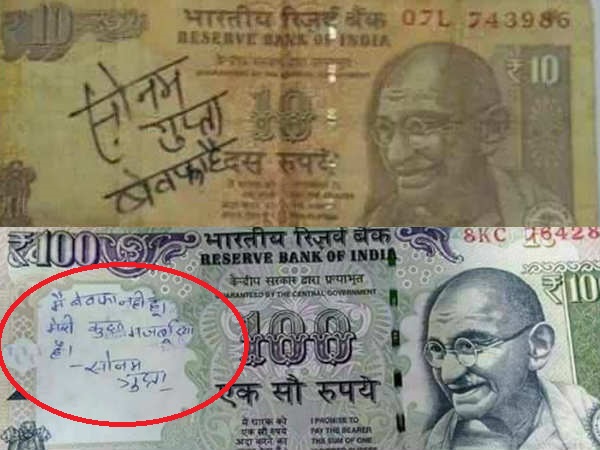 ₹10
भारतीय रिज़र्व बैंक
07L 743986
RESERVE BANK OF INDIA
₹10
सोनम
गुप्ता
बेवफा है
10
दस रुपये
₹100
भारतीय रिज़र्व बैंक
8KC
RESERVE BANK OF INDIA
केन्द्रीय सरकार द्वारा प्रत्याभूत
GUARANTEED BY THE CENTRAL GOVERNMENT
₹10
मैं बेवफा नहीं हूं।
मेरी कुछ मजबूरियां
है।
-सोनम
गुप्ता
100
एक सौ रुपये
मैं धारक को
एक सौ रुपये
अदा करने का
I PROMISE TO
PAY THE BEARER
THE SUM OF ONE